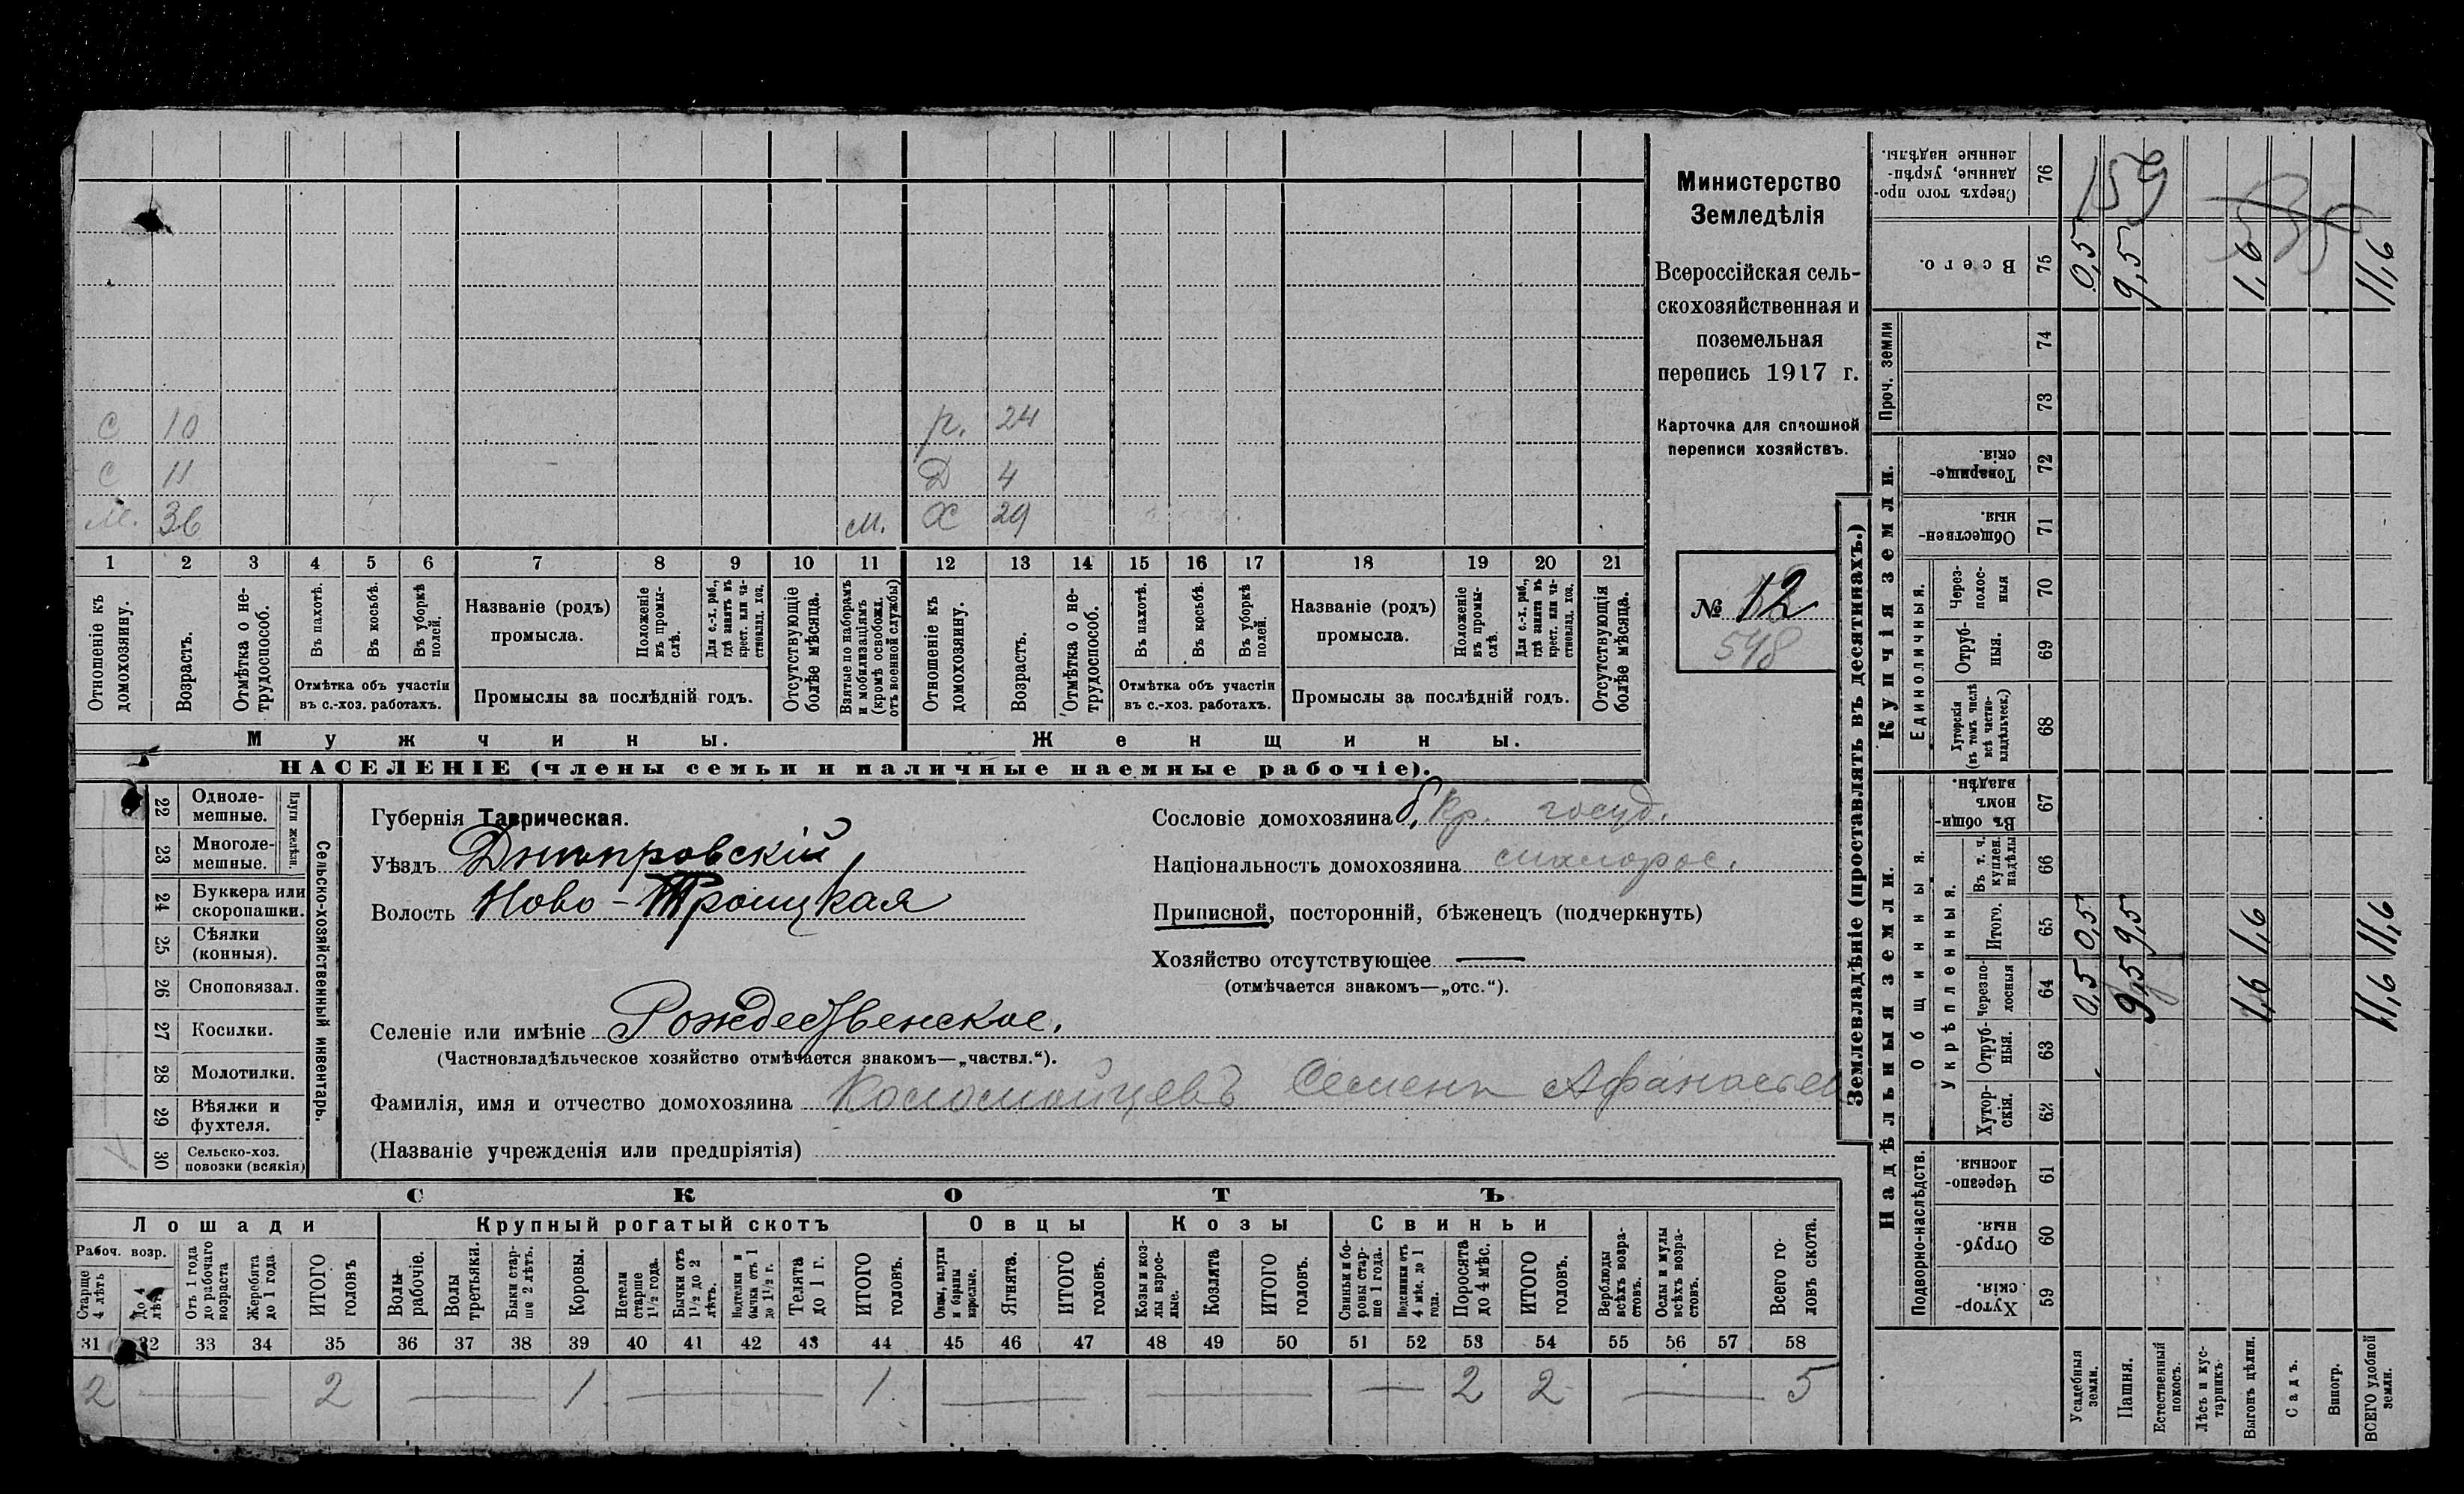 Министерство
Земледѣлія
Всероссійская сель-
скохозяйственная и
поземельная
перепись 1917 г.
Карточка для сплошной
переписи хозяйствъ.
№ 12
548
С 10 р. 24
С 11 Д 4
М. 36 м. Х 29
1 2 3 4 5 6 7 8 9 10 11 12 13 14 15 16 17 18 19 20 21
Отношеніе къ домохозяину.
Возрастъ.
Отмѣтка о не-трудоспособ.
Въ пахотѣ.
Въ косьбѣ.
Въ уборкѣ полей.
Отмѣтка объ участіи
въ с.-хоз. работахъ.
Названіе (родъ)
промысла.
Положеніе въ промы-слѣ.
Для с.-х. раб., гдѣ занятъ въ крест. или ча-стновлад. хоз.
Промыслы за послѣдній годъ.
Отсутствующіе болѣе мѣсяца.
Взятые по наборамъ и мобилизаціямъ (кромѣ освобожд. отъ военной службы)
Отношеніе къ домохозяину.
Возрастъ.
Отмѣтка о не-трудоспособ.
Въ пахотѣ.
Въ косьбѣ.
Въ уборкѣ полей.
Отмѣтка объ участіи
въ с.-хоз. работахъ.
Названіе (родъ)
промысла.
Положеніе въ промы-слѣ.
Для с.-х. раб., гдѣ занята въ крест. или ча-стновлад. хоз.
Промыслы за послѣдній годъ.
Отсутствующія болѣе мѣсяца.
Мужчины. Женщины.
НАСЕЛЕНІЕ (члены семьи и наличные наемные рабочіе).
Сельско-хозяйственный инвентарь.
Плуги желѣзн.
22 Одноле-мешные.
23 Многоле-мешные.
24 Буккера или скоропашки.
25 Сѣялки (конныя).
26 Сноповязал.
27 Косилки.
28 Молотилки.
29 Вѣялки и фухтеля.
30 Сельско-хоз. повозки (всякія)
Губернія Таврическая.
Уѣздъ Днѣпровскій
Волость Ново-Троицкая
Селеніе или имѣніе Рождественское.
(Частновладѣльческое хозяйство отмѣчается знакомъ—„частвл.“).
Фамилія, имя и отчество домохозяина Коломойцевъ Семенъ Афанасьев
(Названіе учрежденія или предпріятія)
Сословіе домохозяина б. кр. госуд.
Національность домохозяина малорос.
Приписной, посторонній, бѣженецъ (подчеркнуть)
Хозяйство отсутствующее —
(отмѣчается знакомъ—„отс.“).
СКОТЪ
Лошади Крупный рогатый скотъ Овцы Козы Свиньи
Рабоч. возр.
Старше 4 лѣтъ
До 4 лѣтъ
Отъ 1 года до рабочаго возраста
Жеребята до 1 года
ИТОГО головъ
Волы рабочіе.
Волы третьяки.
Быки стар-ше 2 лѣтъ.
Коровы.
Нетели старше 1 1/2 года.
Бычки отъ 1 1/2 до 2 лѣтъ.
Подтелки и бычки отъ 1 до 1 1/2 г.
Телята до 1 г.
ИТОГО головъ.
Овцы, валухи и бараны взрослые.
Ягнята.
ИТОГО головъ.
Козы и коз-лы взрос-лые.
Козлята
ИТОГО головъ.
Свиньи и бо-ровы стар-ше 1 года.
Подсвинки отъ 4 мѣс. до 1 года.
Поросята до 4 мѣс.
ИТОГО головъ.
Верблюды всѣхъ возра-стовъ.
Ослы и мулы всѣхъ возра-стовъ.
Всего го-ловъ скота.
31 32 33 34 35 36 37 38 39 40 41 42 43 44 45 46 47 48 49 50 51 52 53 54 55 56 57 58
2 — 2 — 1 — 1 — — — 2 2 — 5
Землевладѣніе (проставлять въ десятинахъ.)
Надѣльныя земли. Купчія земли.
Проч. земли
Подворно-наслѣдств.
Общинныя.
Укрѣпленныя.
Единоличныя.
76 Сверхъ того про-данные, укрѣп-ленные надѣлы.
159
75 Всего. 0,5 9,5 1,6 11,6
74
73
72 Товарище-скія.
71 Обществен-ныя.
70 Через-полос-ныя
69 Отруб-ныя.
68 Хуторскія (въ томъ числѣ всѣ частно-владѣльческ.)
67 Въ общи-номъ владѣн.
66 Въ т. ч. куплен. надѣлы
65 Итого. 0,5 9,5 1,6 11,6
64 Черезпо-лосныя 0,5 9,5 1,6 11,6
63 Отруб-ныя.
62 Хутор-скія.
61 Черезпо-лосныя.
60 Отруб-ныя.
59 Хутор-скія.
Усадебныя земли.
Пашня.
Естественный покосъ.
Лѣсъ и кус-тарникъ.
Выгонъ цѣлин.
Садъ.
Виногр.
ВСЕГО удобной земли.